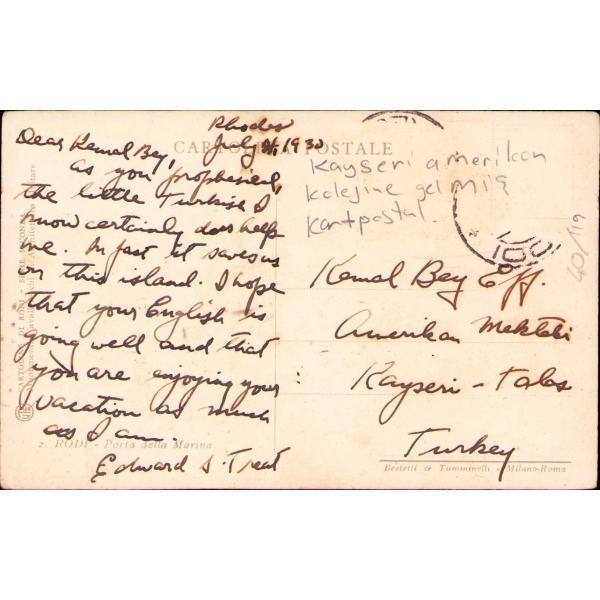 Rhodes
July 21, 1930
CARTOLINA POSTALE
Dear Kemal Bey,
as you prophesied,
the little Turkish I
know certainly does help
me. In fact it saves us
on this island. I hope
that your English is
going well and that
you are enjoying your
vacation as much
as I am.
Edward S. Treat
Kayseri amerikan
kolejine gelmiş
kartpostal.
40/119
Kemal Bey Eff.
Amerikan Mektebi
Kayseri - Talas
Turkey
2. RODI - Porta della Marina.
Bestetti & Tumminelli - Milano-Roma